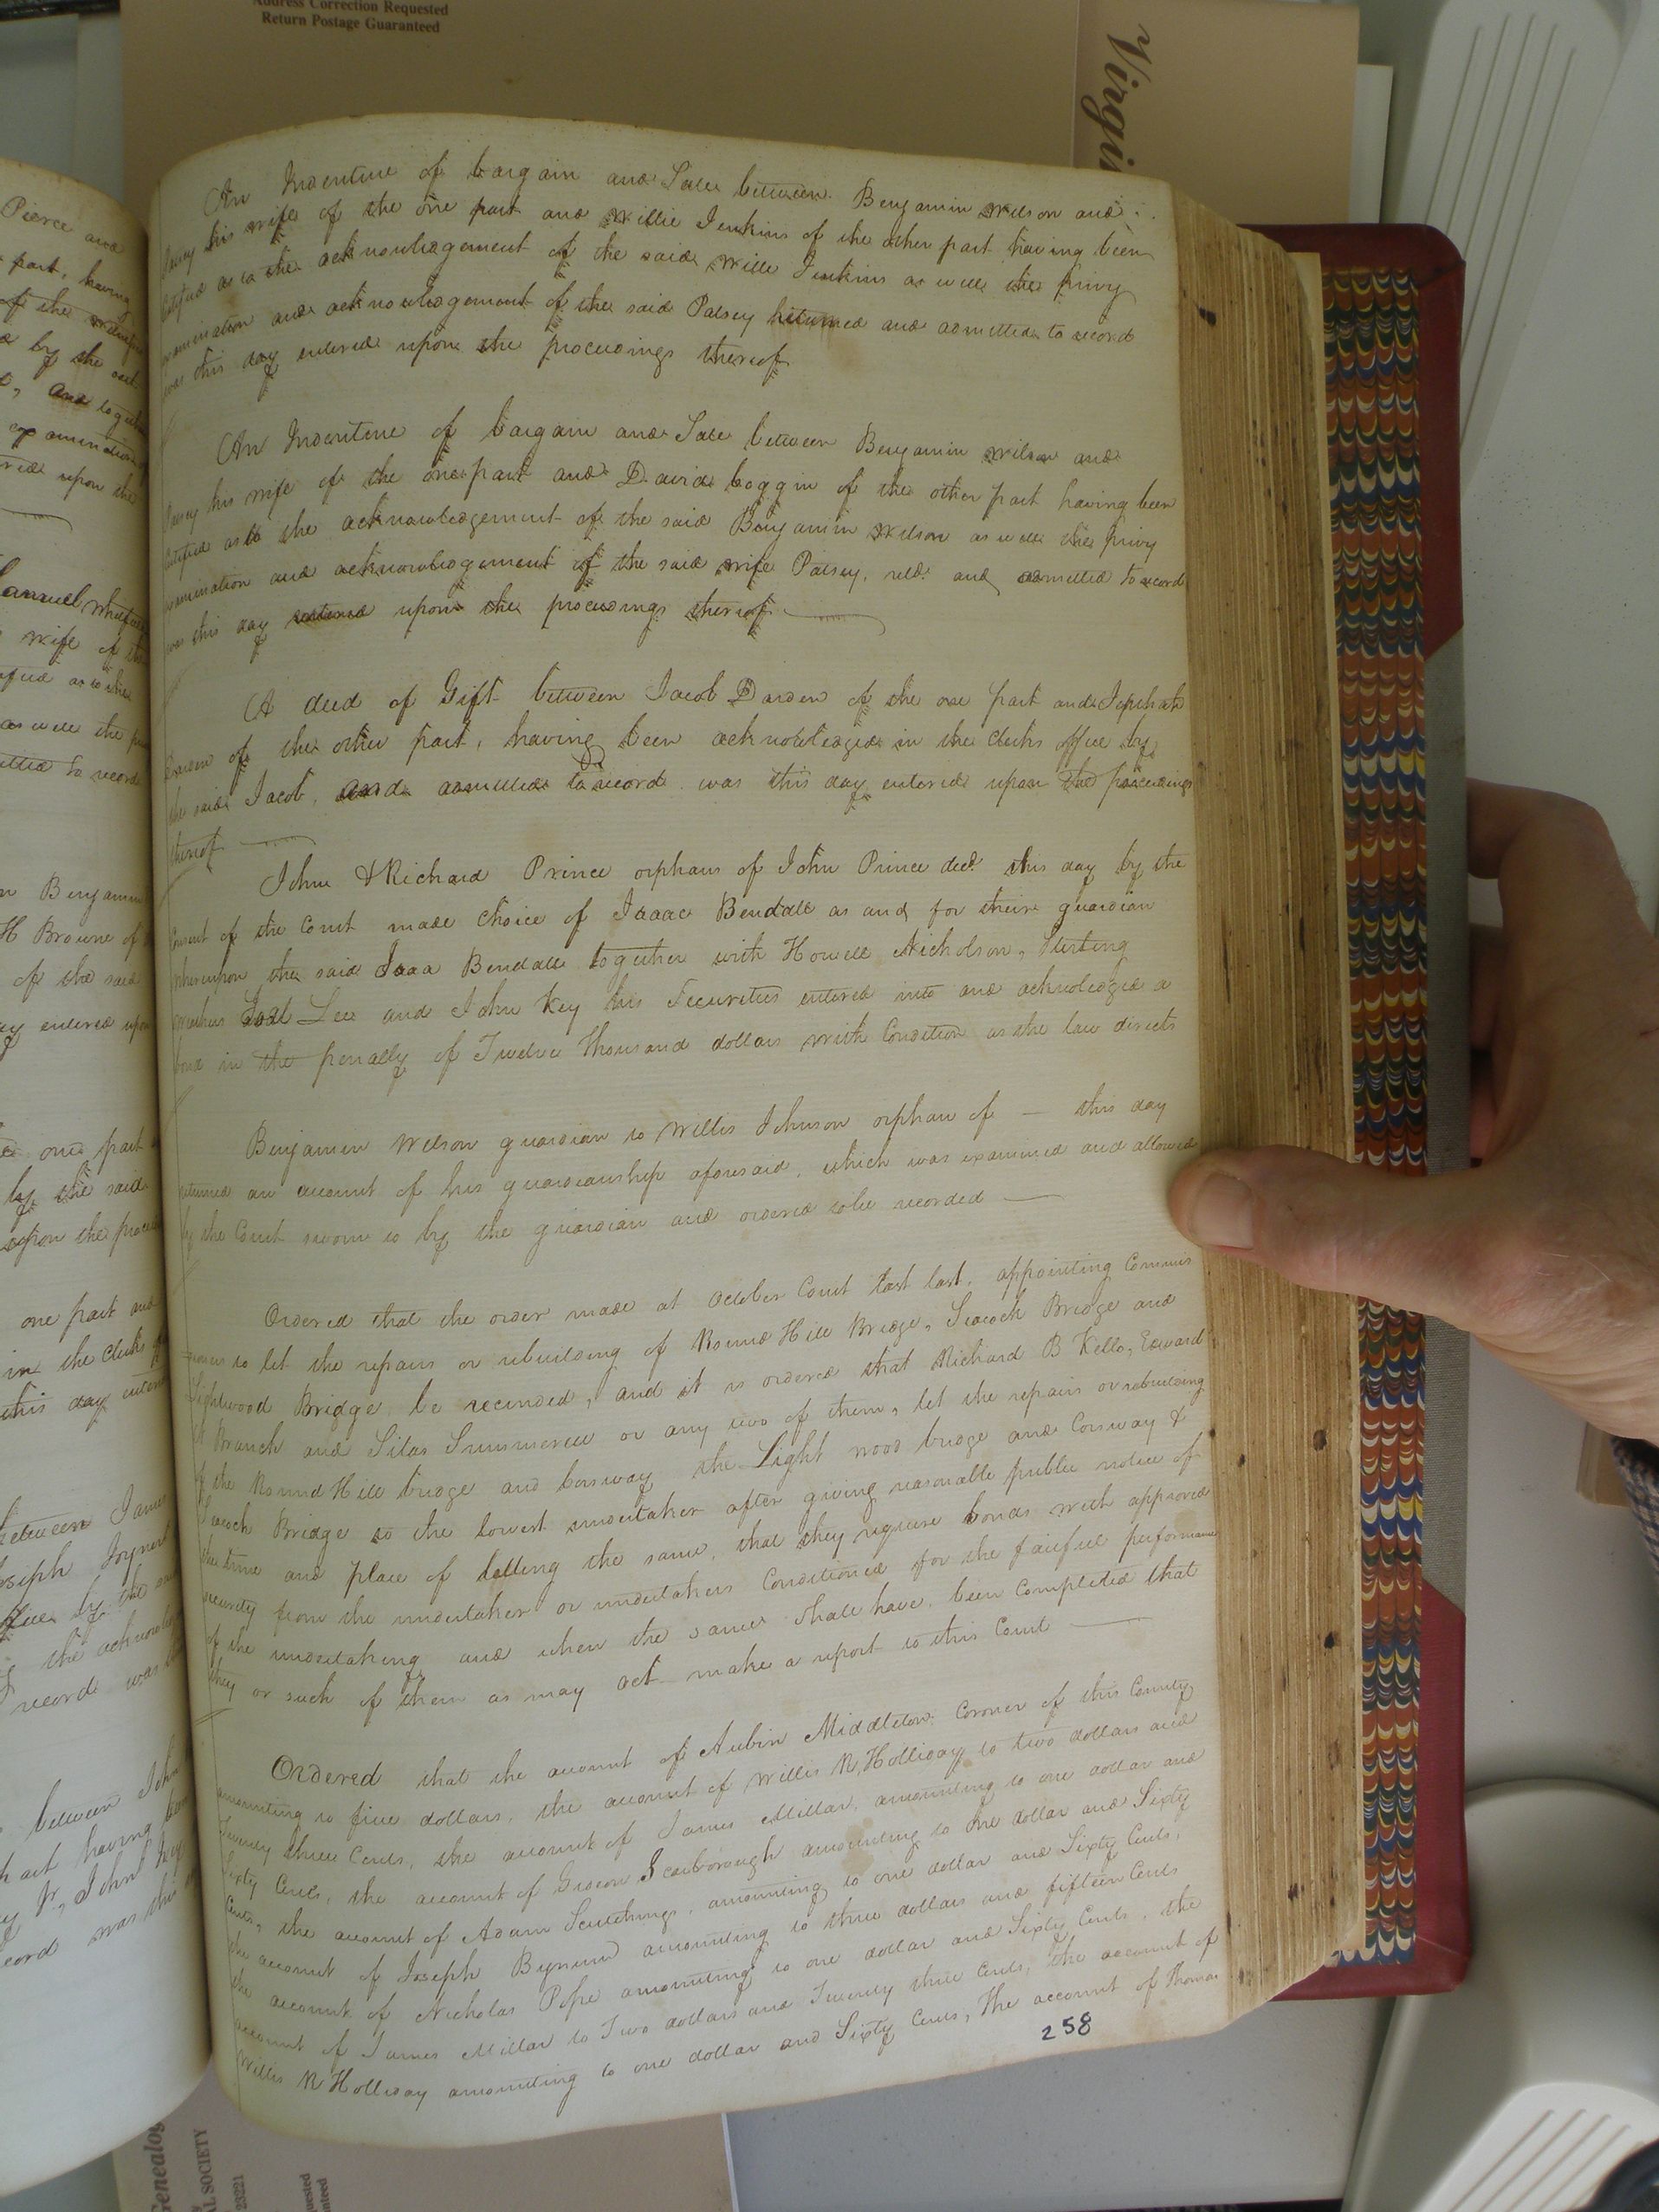 Address Correction Requested
Return Postage Guaranteed
Virgin
An Indenture of bargain and Sale between Benjamin Wilson and
his wife of the one part and Willie Jenkins of the other part having been
as to the acknowledgement of the said Willie Jenkins as well the privy
and acknowledgement of the said Patsey returned and admitted to record
was this day entered upon the proceedings thereof
An Indenture of bargain and Sale between Benjamin Wilson and
his wife of the one part and David of the other part having been
as to the acknowledgement of the said Benjamin Wilson as well the privy
examination and acknowledgement of the said wife Patsey, retd. and admitted to record
was this day entered upon the proceedings thereof
A deed of Gift between Jacob Darden of the one part and Jepthah
Darden of the other part, having been acknowledged in the Clerks office by
the said Jacob, and admitted to record was this day entered upon the proceedings
thereof
John & Richard Prince orphans of John Prince decd. this day by the
Consent of the Court made choice of Isaac Bendall as and for their guardian
whereupon the said Isaa Bendall together with Howell Nicholson, Sterling
Lee and John Key his Securities entered into and acknoledged a
bond in the penalty of Twelve thousand dollars with Condition as the law directs
Benjamin Wilson guardian to Willis Johnson orphan of — this day
returned an account of his guardianship aforesaid, which was examined and allowed
by the Court sworn to by the guardian and ordered to be recorded
Ordered that the order made at October Court last last, appointing Commis
sioners to let the repairs or rebuilding of Round Hill Bridge, Seacock Bridge and
Lightwood Bridge be recinded, and it is ordered that Richard B Kello, Edward
Branch and Silas Summerell or any two of them, let the repairs or rebuilding
of the Round Hill bridge and Corsway the Light wood bridge and Corsway &
Seacock Bridge to the lowest undertaker after giving reasonable public notice of
the time and place of letting the same, that they require bonds with approved
security from the undertaker or undertakers Conditioned for the faithful performance
of the undertaking and when the same shall have been Completed that
they or such of them as may act make a report to this Court
Ordered that the account of Aubin Middleton Coroner of this County,
amounting to five dollars, the account of Willis R, Holliday to two dollars and
Twenty three Cents, the account of James Millar, amounting to one dollar and
Sixty Cents, the account of Gideon Scarborough amounting to one dollar and Sixty
Cents, the account of Adam Scutchings, amounting to one dollar and Sixty Cents,
the account of Joseph Bynum amounting to three dollars and fifteen Cents
the account of Nicholas Pope amounting to one dollar and Sixty Cents, the
account of James Millar to Two dollars and Twenty three Cents, the account of
Willis R Holliday amounting to one dollar and Sixty Cents, the account of Thomas
258
Pierce and
part, having
of the
by the
and
upon the
wife of
as well the
to record
Benjamin
H Browne of
of the said
entered upon
one part
by the said
upon the
one part and
in the Clerks
this day
between James
Joseph Joyner
by the
the
record was
between John
part having been
Jr., John Key
record was this
Genealog
AL SOCIETY
23221